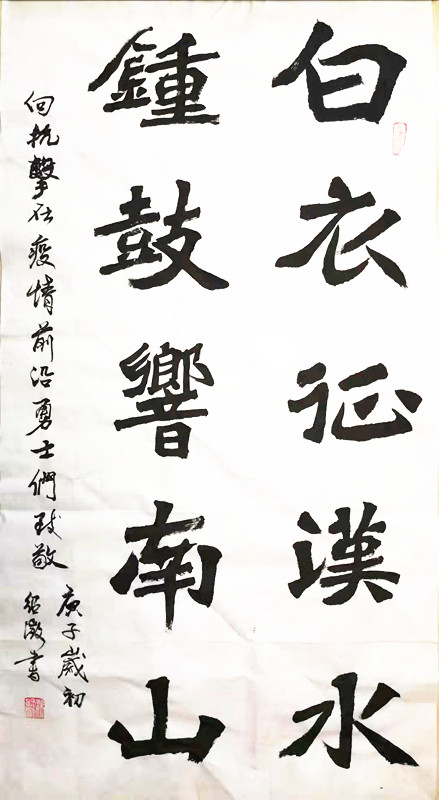 白衣征漢水
鍾鼓響南山
向抗擊在疫情前沿勇士們致敬
庚子歲初
紹激書